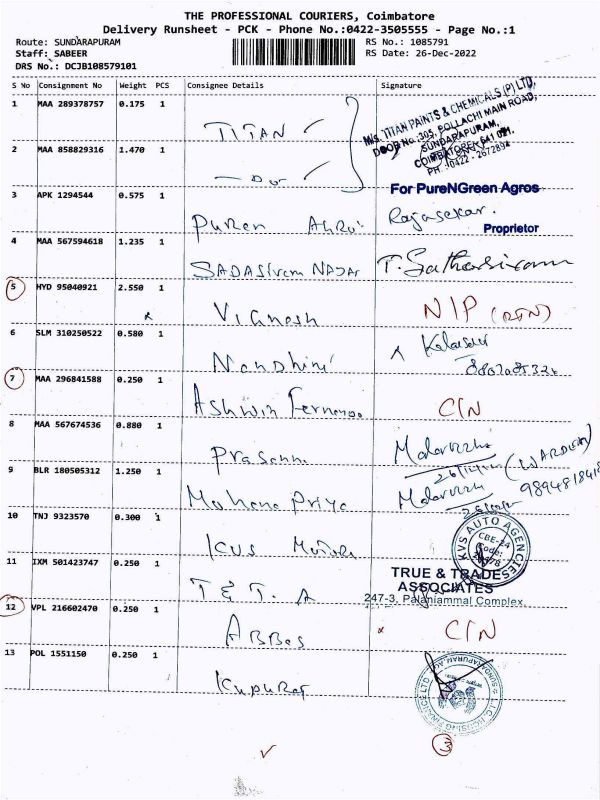 THE PROFESSIONAL COURIERS, Coimbatore
Delivery Runsheet - PCK - Phone No.:0422-3505555 - Page No.:1
Route: SUNDARAPURAM RS No.: 1085791
Staff: SABEER RS Date: 26-Dec-2022
DRS No.: DCJB108579101
S No Consignment No Weight PCS Consignee Details Signature
1 MAA 289378757 0.175 1 TITAN
M/s. TITAN PAINTS & CHEMICALS (P) LTD,
DOOR No. 305, POLLACHI MAIN ROAD,
SUNDARAPURAM,
COIMBATORE - 641 021.
PH: 0422 - 2672894
2 MAA 858829316 1.470 1 - Do -
For PureNGreen Agros
3 APK 1294544 0.575 1 Puren Rajasekar.
Proprietor
4 MAA 567594618 1.235 1 SADASIVAM NADAR T. Sathasivam
5 HYD 95040921 2.550 1 Vignesh N/P (RTN)
6 SLM 310250522 0.580 1 Nandhini
7 MAA 296841588 0.250 1 Ashwin C/N
8 MAA 567674536 0.880 1 Prasanna (WARDEN)
9 BLR 180505312 1.250 1 Mohana Priya 9894818418
10 TNJ 9323570 0.300 1 KVS
KVS AUTO AGENCIES
CBE-24
Code:
11 IXM 501423747 0.250 1 T & T. A
TRUE & TRADE
ASSOCIATES
247-3, Palaniammal Complex,
12 VPL 216602470 0.250 1 ABBas C/N
13 POL 1551150 0.250 1
3